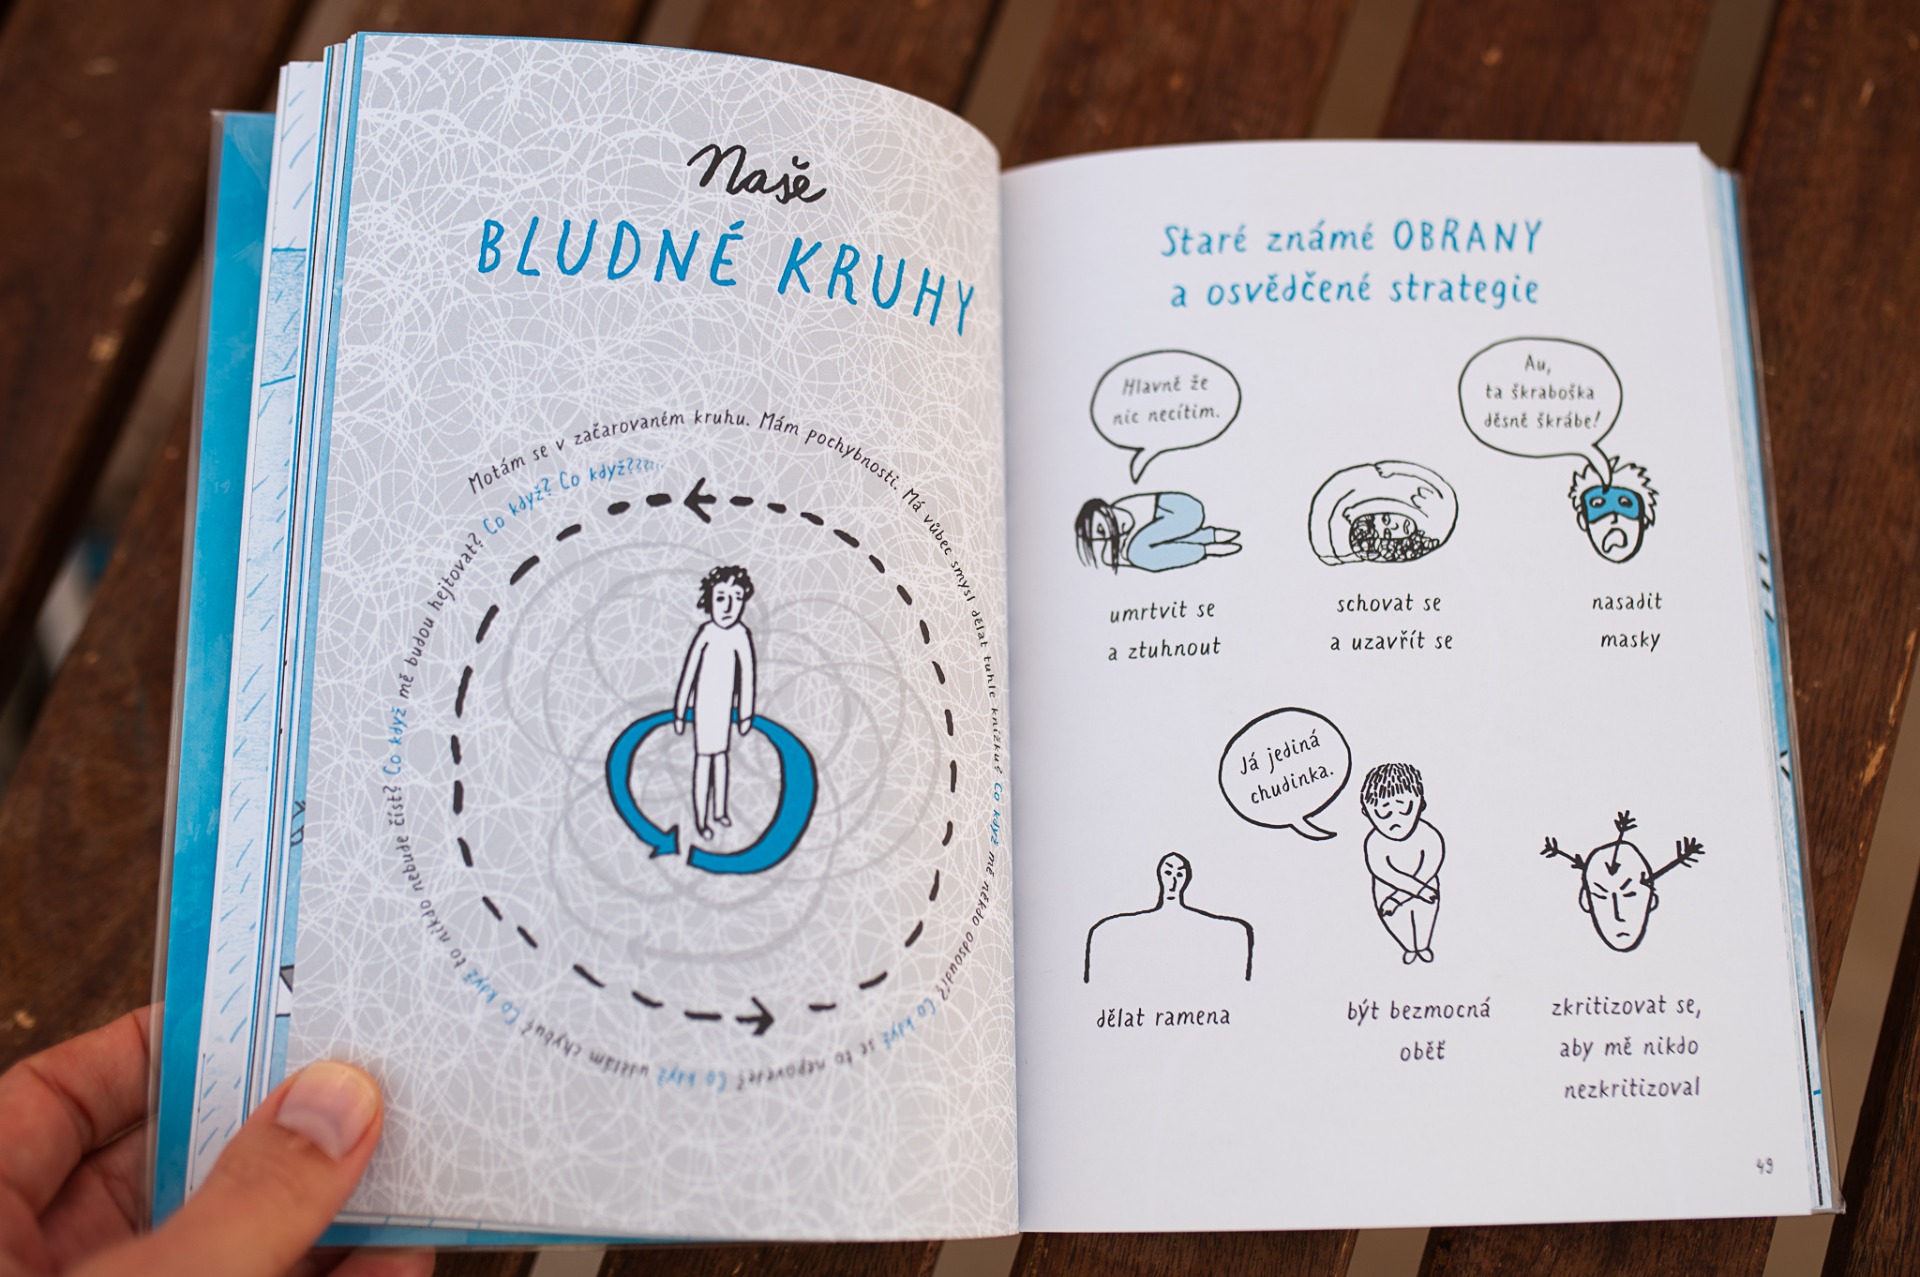 Naše
BLUDNÉ KRUHY
Motám se v začarovaném kruhu. Mám pochybnosti. Má vůbec smysl dělat tuhle knížku? Co když mě někdo odsoudí? Co když se to nepovede? Co když udělám chybu? Co když to nikdo nebude číst? Co když mě budou hejtovat? Co když? Co když????...
Staré známé OBRANY
a osvědčené strategie
Hlavně že
nic necítím.
Au,
ta škraboška
děsně škrábe!
umrtvit se
a ztuhnout
schovat se
a uzavřít se
nasadit
masky
Já jediná
chudinka.
dělat ramena
být bezmocná
oběť
zkritizovat se,
aby mě nikdo
nezkritizoval
49